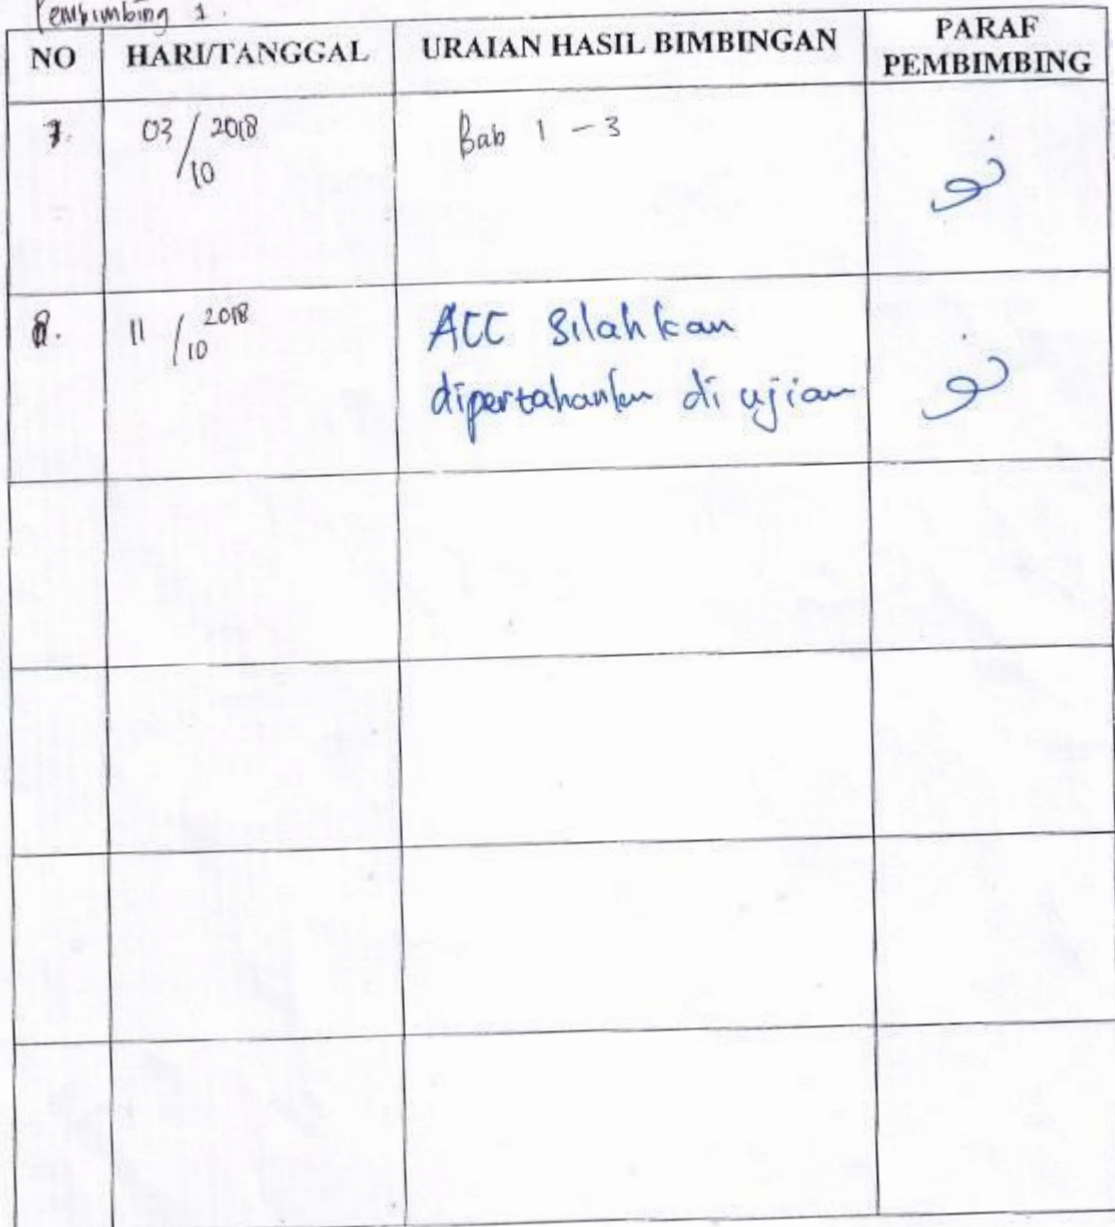 Pembimbing 1.
NO HARI/TANGGAL URAIAN HASIL BIMBINGAN PARAF PEMBIMBING
7. 03/10 2018 Bab 1 - 3
8. 11/10 2018 ACC Silahkan
dipertahankan di ujian